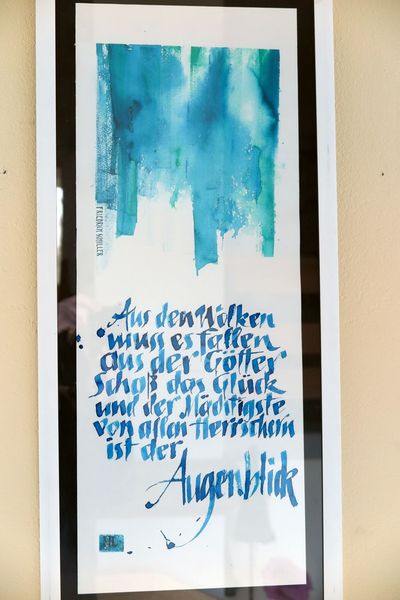 FRIEDRICH SCHILLER
Aus den Wolken
muss es fallen
aus der Götter
Schoß das Glück
und der Mächtigste
von allen Herrschern
ist der
Augenblick